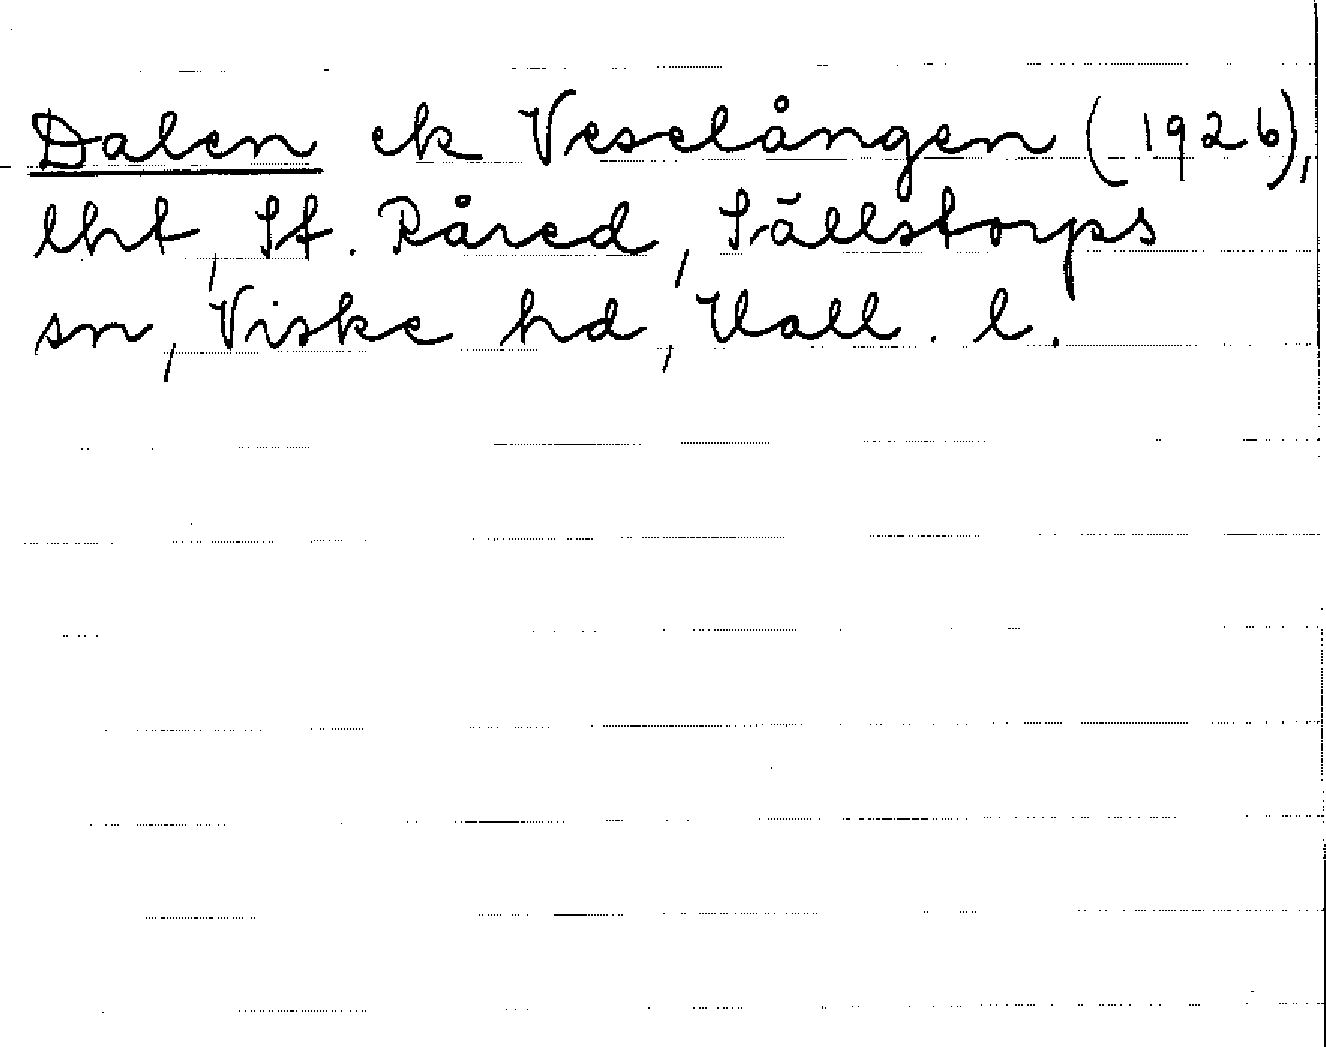 Dalen ek Veselången (1926),
lht, St. Råred, Sällstorps
sn, Viske hd, Hall. l.